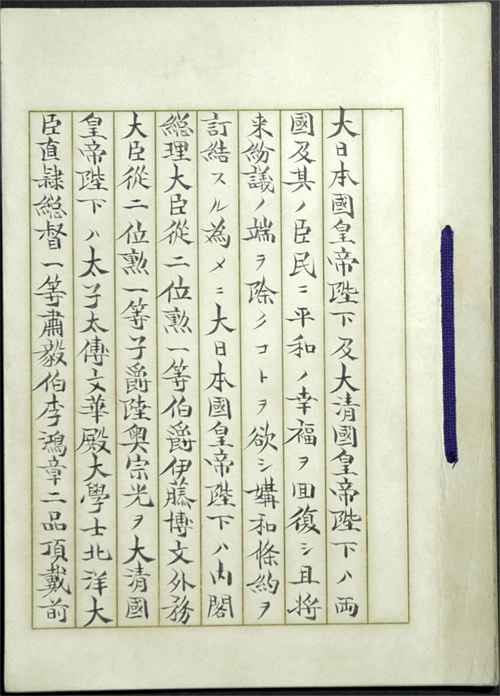 大日本國皇帝陛下及大清國皇帝陛下ハ両
國及其ノ臣民ニ平和ノ幸福ヲ回復シ且将
来紛議ノ端ヲ除クコトヲ欲シ媾和條約ヲ
訂結スル為メニ大日本國皇帝陛下ハ内閣
総理大臣從二位勲一等伯爵伊藤博文外務
大臣從二位勲一等子爵陸奥宗光ヲ大清國
皇帝陛下ハ太子太傅文華殿大學士北洋大
臣直隷総督一等肅毅伯李鴻章二品頂戴前